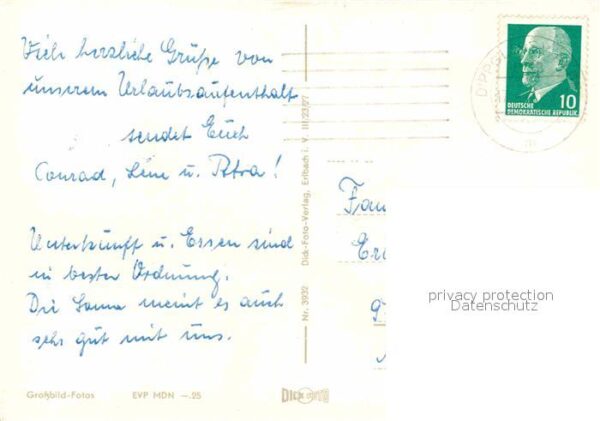 Viele herzliche Grüße von
unserem Urlaubsaufenthalt
sendet Euch
Conrad, Lene u. Petra!
Unterkunft u. Essen sind
in bester Ordnung.
Die Sonne meint es auch
sehr gut mit uns.
Großbild-Fotos EVP MDN —.25
Nr. 3932 Dick-Foto-Verlag, Erlbach i. V. III/23/27
DICK FOTO
DEUTSCHE
DEMOKRATISCHE REPUBLIK 10
DIPPO
Fam
privacy protection
Datenschutz